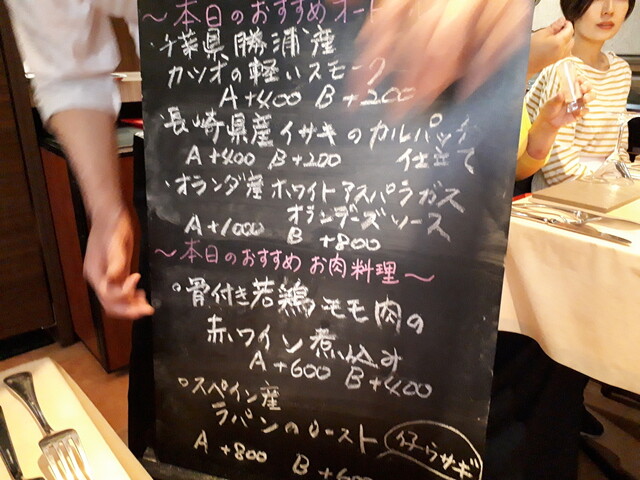 ～本日のおすすめオー
・千葉県勝浦産
カツオの軽いスモーク
A+400 B+200
・長崎県産イサキのカルパッチョ
A+400 B+200 仕立て
・オランダ産ホワイトアスパラガス
オランデーズソース
A+1000 B+800
～本日のおすすめ お肉料理～
・骨付き若鶏モモ肉の
赤ワイン煮込み
A+600 B+400
・スペイン産
ラパンのロースト 仔ウサギ
A+800 B+600